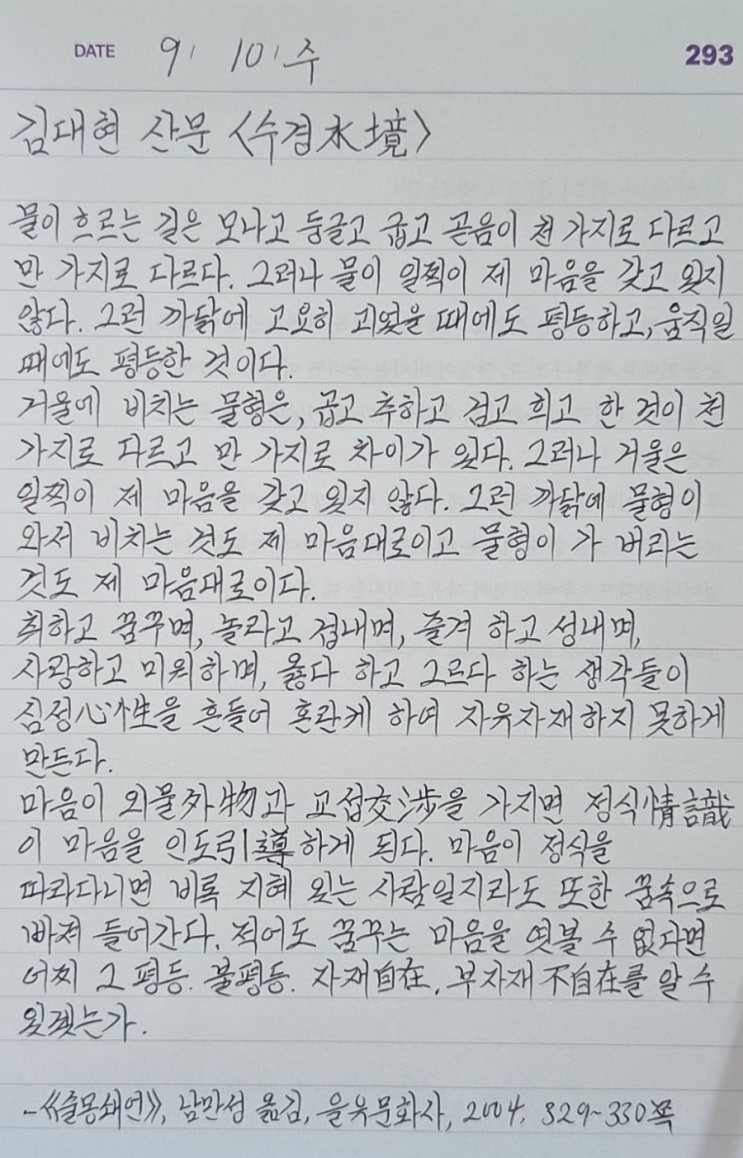 DATE 9 / 10 / 수 293
김대현 산문 <수경水境>
물이 흐르는 길은 모나고 둥글고 굽고 곧음이 천 가지로 다르고
만 가지로 다르다. 그러나 물이 일찍이 제 마음을 갖고 있지
않다. 그런 까닭에 고요히 괴었을 때에도 평등하고, 움직일
때에도 평등한 것이다.
거울에 비치는 물형은, 곱고 추하고 검고 희고 한 것이 천
가지로 다르고 만 가지로 차이가 있다. 그러나 거울은
일찍이 제 마음을 갖고 있지 않다. 그런 까닭에 물형이
와서 비치는 것도 제 마음대로이고 물형이 가 버리는
것도 제 마음대로이다.
취하고 꿈꾸며, 놀라고 겁내며, 즐겨 하고 성내며,
사랑하고 미워하며, 옳다 하고 그르다 하는 생각들이
심성心性을 흔들어 혼란케 하여 자유자재하지 못하게
만든다.
마음이 외물外物과 교섭交涉을 가지면 정식情識
이 마음을 인도引導하게 된다. 마음이 정식을
따라다니면 비록 지혜 있는 사람일지라도 또한 꿈속으로
빠져 들어간다. 적어도 꿈꾸는 마음을 엿볼 수 없다면
어찌 그 평등. 불평등. 자재自在. 부자재不自在를 알 수
있겠는가.
-《술몽쇄언》, 남만성 옮김, 을유문화사, 2004, 329~330쪽